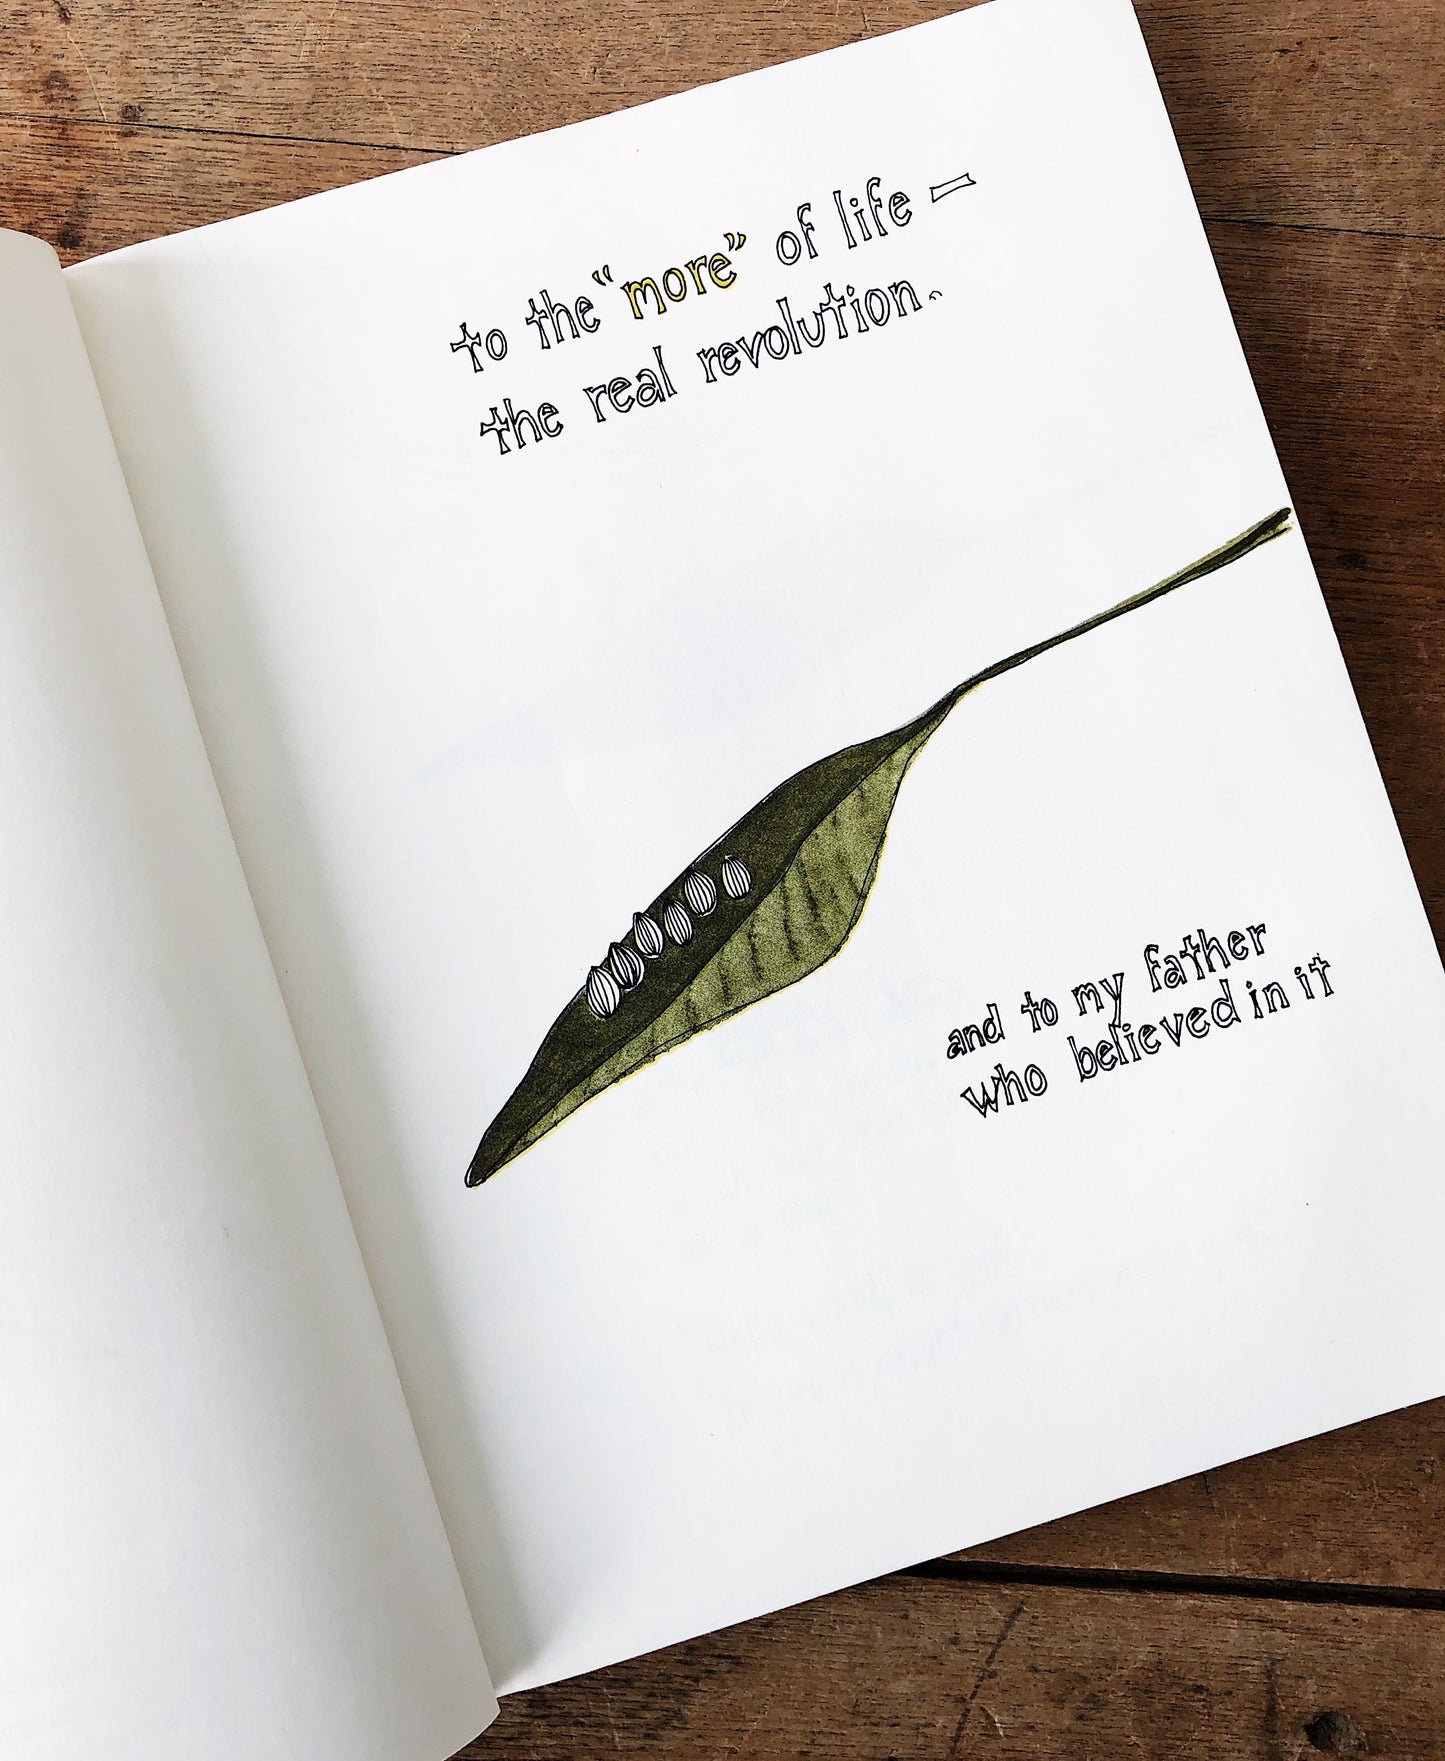 to the “more” of life —
the real revolution.
and to my father
who believed in it